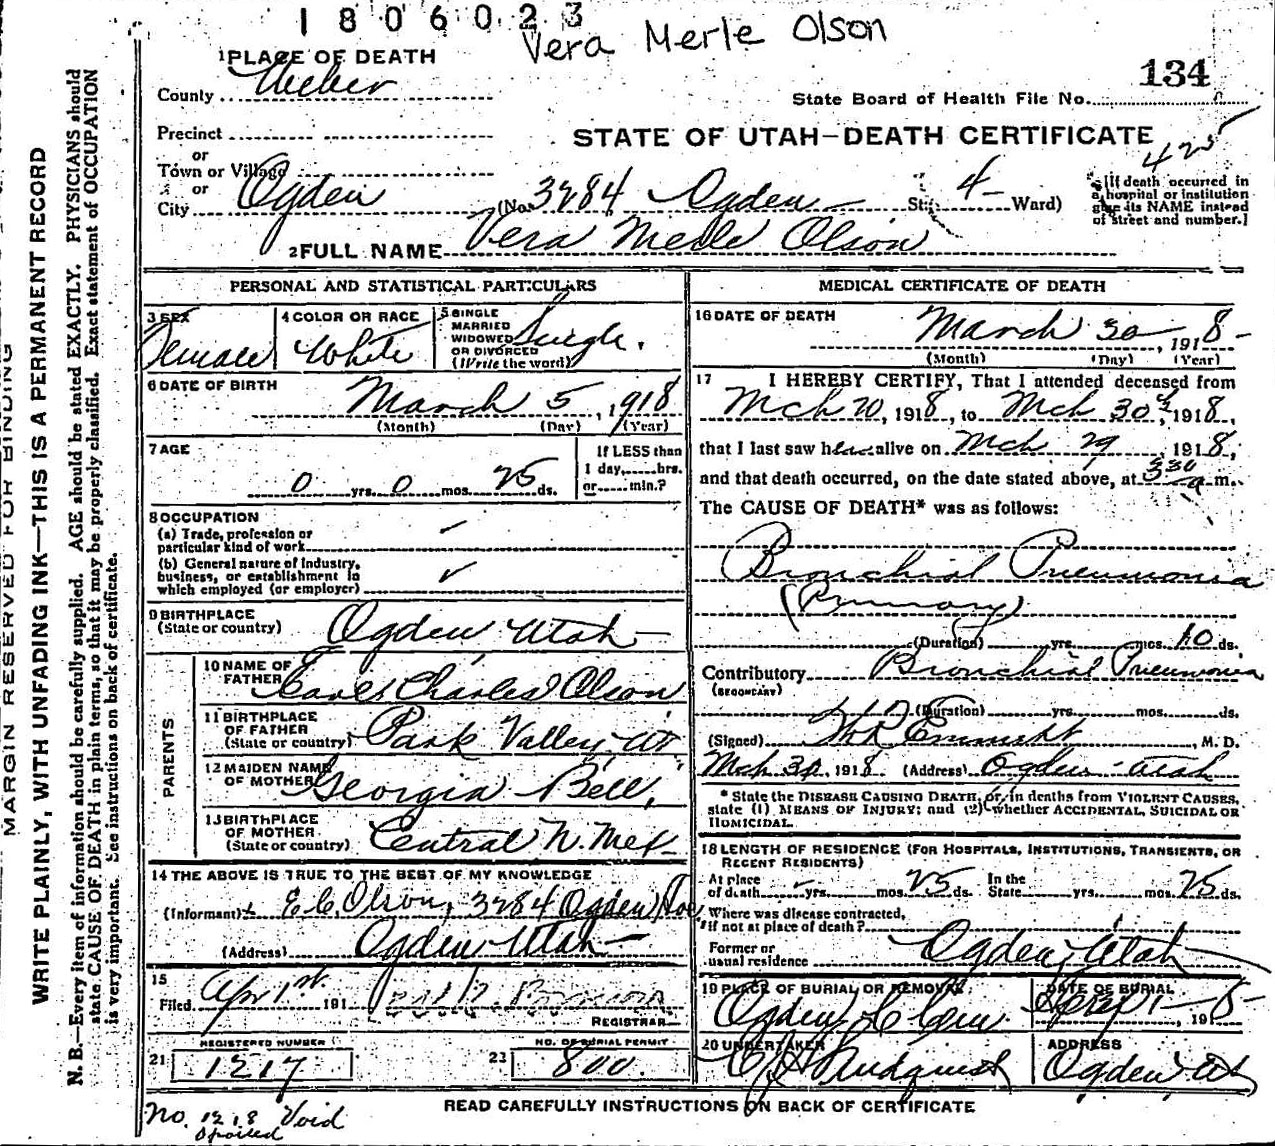 1806023
Vera Merle Olson
134
1 PLACE OF DEATH
County Weber
State Board of Health File No.
Precinct
STATE OF UTAH—DEATH CERTIFICATE
425
or
Town or Village
or
City Ogden (No. 3284 Ogden St; 4 Ward)
[If death occurred in
a hospital or institution
give its NAME instead
of street and number.]
2 FULL NAME Vera Merle Olson
PERSONAL AND STATISTICAL PARTICULARS
3 SEX
Female
4 COLOR OR RACE
White
5 SINGLE
MARRIED
WIDOWED
OR DIVORCED
(Write the word)
Single.
6 DATE OF BIRTH
March 5, 1918
(Month) (Day) (Year)
7 AGE
0 yrs. 0 mos. 25 ds.
If LESS than
1 day, hrs.
or min.?
8 OCCUPATION
(a) Trade, profession or
particular kind of work
(b) General nature of industry,
business, or establishment in
which employed (or employer)
9 BIRTHPLACE
(State or country) Ogden Utah
PARENTS
10 NAME OF
FATHER Charles Olson
11 BIRTHPLACE
OF FATHER
(State or country) Park Valley, Ut
12 MAIDEN NAME
OF MOTHER Georgia Bell,
13 BIRTHPLACE
OF MOTHER
(State or country) Central N. Mex
14 THE ABOVE IS TRUE TO THE BEST OF MY KNOWLEDGE
(Informant) E. C. Olson, 3284 Ogden Ave
(Address) Ogden Utah
15
Filed Apr 1st 191
REGISTRAR
REGISTERED NUMBER
21 1217
NO. OF BURIAL PERMIT
23 800.
MEDICAL CERTIFICATE OF DEATH
16 DATE OF DEATH
March 30, 1918
(Month) (Day) (Year)
17 I HEREBY CERTIFY, That I attended deceased from
Mch 20, 1918, to Mch 30th 1918,
that I last saw her alive on Mch 29 1918,
and that death occurred, on the date stated above, at 330 a m.
The CAUSE OF DEATH* was as follows:
Bronchial Pneumonia
(Primary)
(Duration) yrs. mos. 10 ds.
Contributory Bronchial Pneumonia
(SECONDARY)
(Duration) yrs. mos. ds.
(Signed) M. D.
Mch 30, 1918 (Address) Ogden Utah
* State the DISEASE CAUSING DEATH, or, in deaths from VIOLENT CAUSES,
state (1) MEANS OF INJURY; and (2) whether ACCIDENTAL, SUICIDAL OR
HOMICIDAL.
18 LENGTH OF RESIDENCE (FOR HOSPITALS, INSTITUTIONS, TRANSIENTS, OR
RECENT RESIDENTS)
At place
of death yrs. mos. 25 ds. In the
State yrs. mos. 25 ds.
Where was disease contracted,
if not at place of death?
Former or
usual residence Ogden, Utah
19 PLACE OF BURIAL OR REMOVAL
Ogden C Cem.
DATE OF BURIAL
Apr 1, 1918
20 UNDERTAKER
Lindquist
ADDRESS
Ogden Ut
READ CAREFULLY INSTRUCTIONS ON BACK OF CERTIFICATE
No. 1218 Void
Spoiled
MARGIN RESERVED FOR BINDING
WRITE PLAINLY, WITH UNFADING INK—THIS IS A PERMANENT RECORD
N. B.—Every item of information should be carefully supplied. AGE should be stated EXACTLY. PHYSICIANS should
state CAUSE OF DEATH in plain terms, so that it may be properly classified. Exact statement of OCCUPATION
is very important. See instructions on back of certificate.